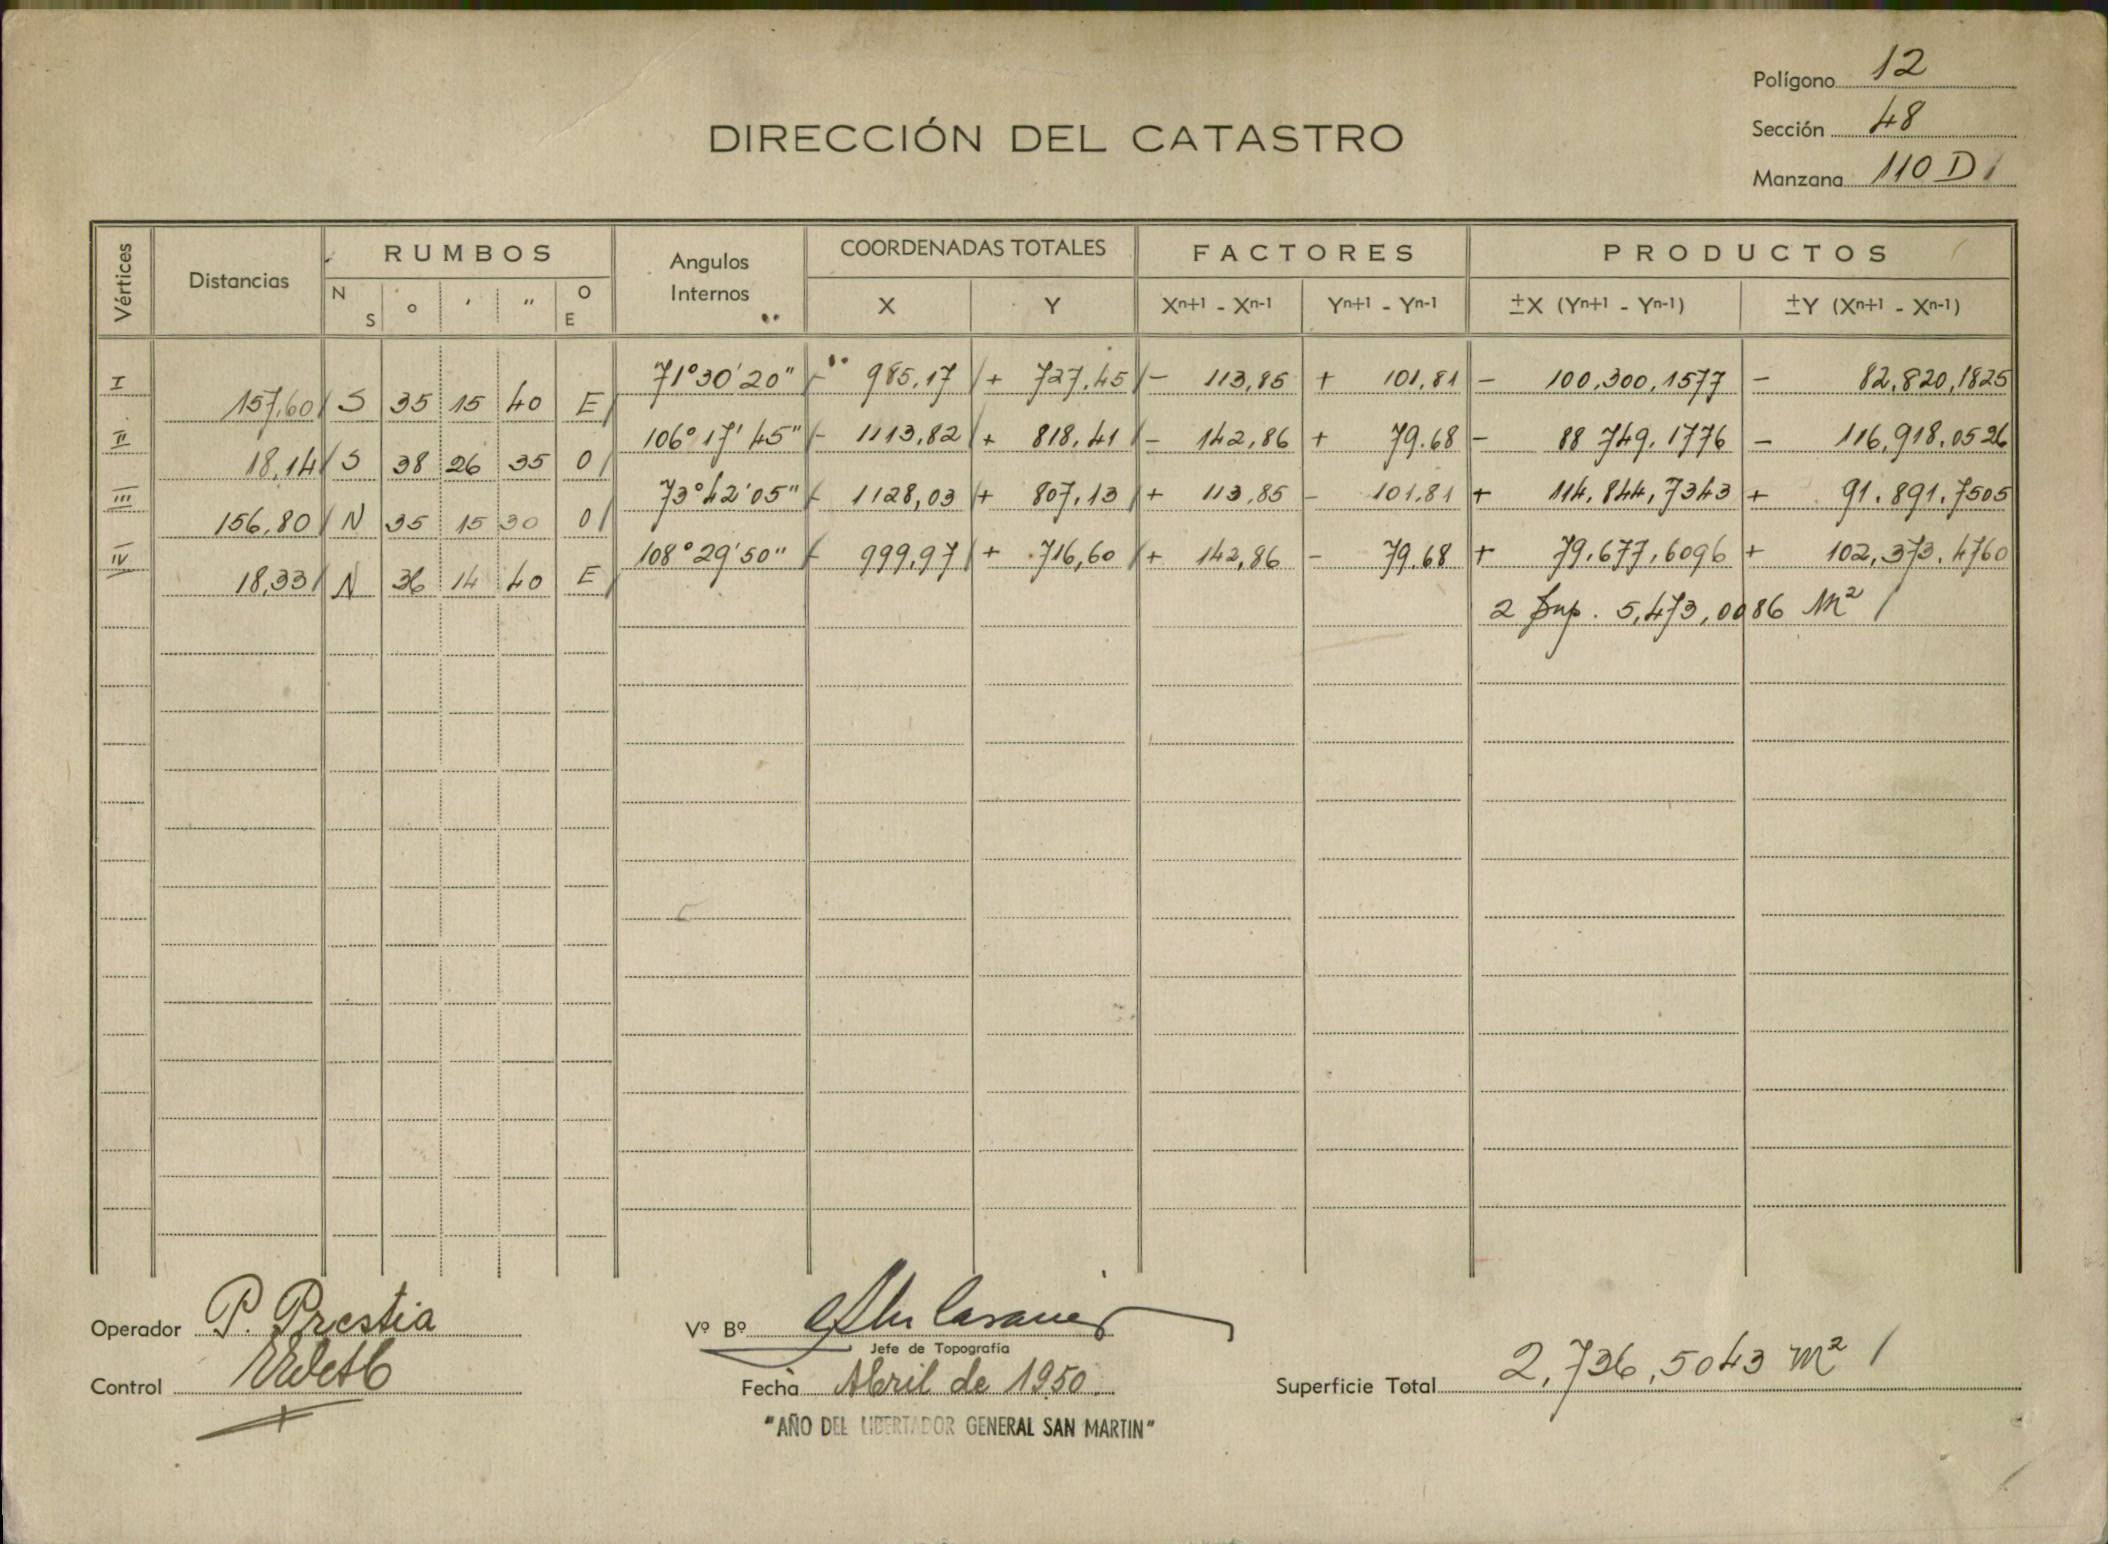 Polígono 12
Sección 48
Manzana 110 D /
DIRECCIÓN DEL CATASTRO
Vértices Distancias RUMBOS Angulos Internos COORDENADAS TOTALES FACTORES PRODUCTOS
N S ° ' " O E X Y Xn+1 - Xn-1 Yn+1 - Yn-1 ±X (Yn+1 - Yn-1) ±Y (Xn+1 - Xn-1)
I 71°30'20" - 985,17 / + 727,45 / - 113,85 + 101,81 - 100,300,1577 - 82,820,1825
157,60 / S 35 15 40 E /
II 106° 17' 45" - 1113,82 / + 818,41 / - 142,86 + 79.68 - 88 749,1776 - 116,918.0526
18,14 / S 38 26 35 O /
III 73°42'05" - 1128,03 / + 807,13 / + 113,85 - 101.81 + 114,844,7343 + 91.891,7505
156,80 / N 35 15 30 O /
IV 108°29'50" - 999,97 / + 716,60 / + 142,86 - 79.68 + 79,677,6096 + 102,373,4760
18,33 / N 36 14 40 E /
2 Sup. 5,473,0086 m² /
Operador P. Prestia
Control
Vº Bº
Jefe de Topografía
Fecha Abril de 1950.
"AÑO DEL LIBERTADOR GENERAL SAN MARTIN"
Superficie Total 2,736,5043 m² /